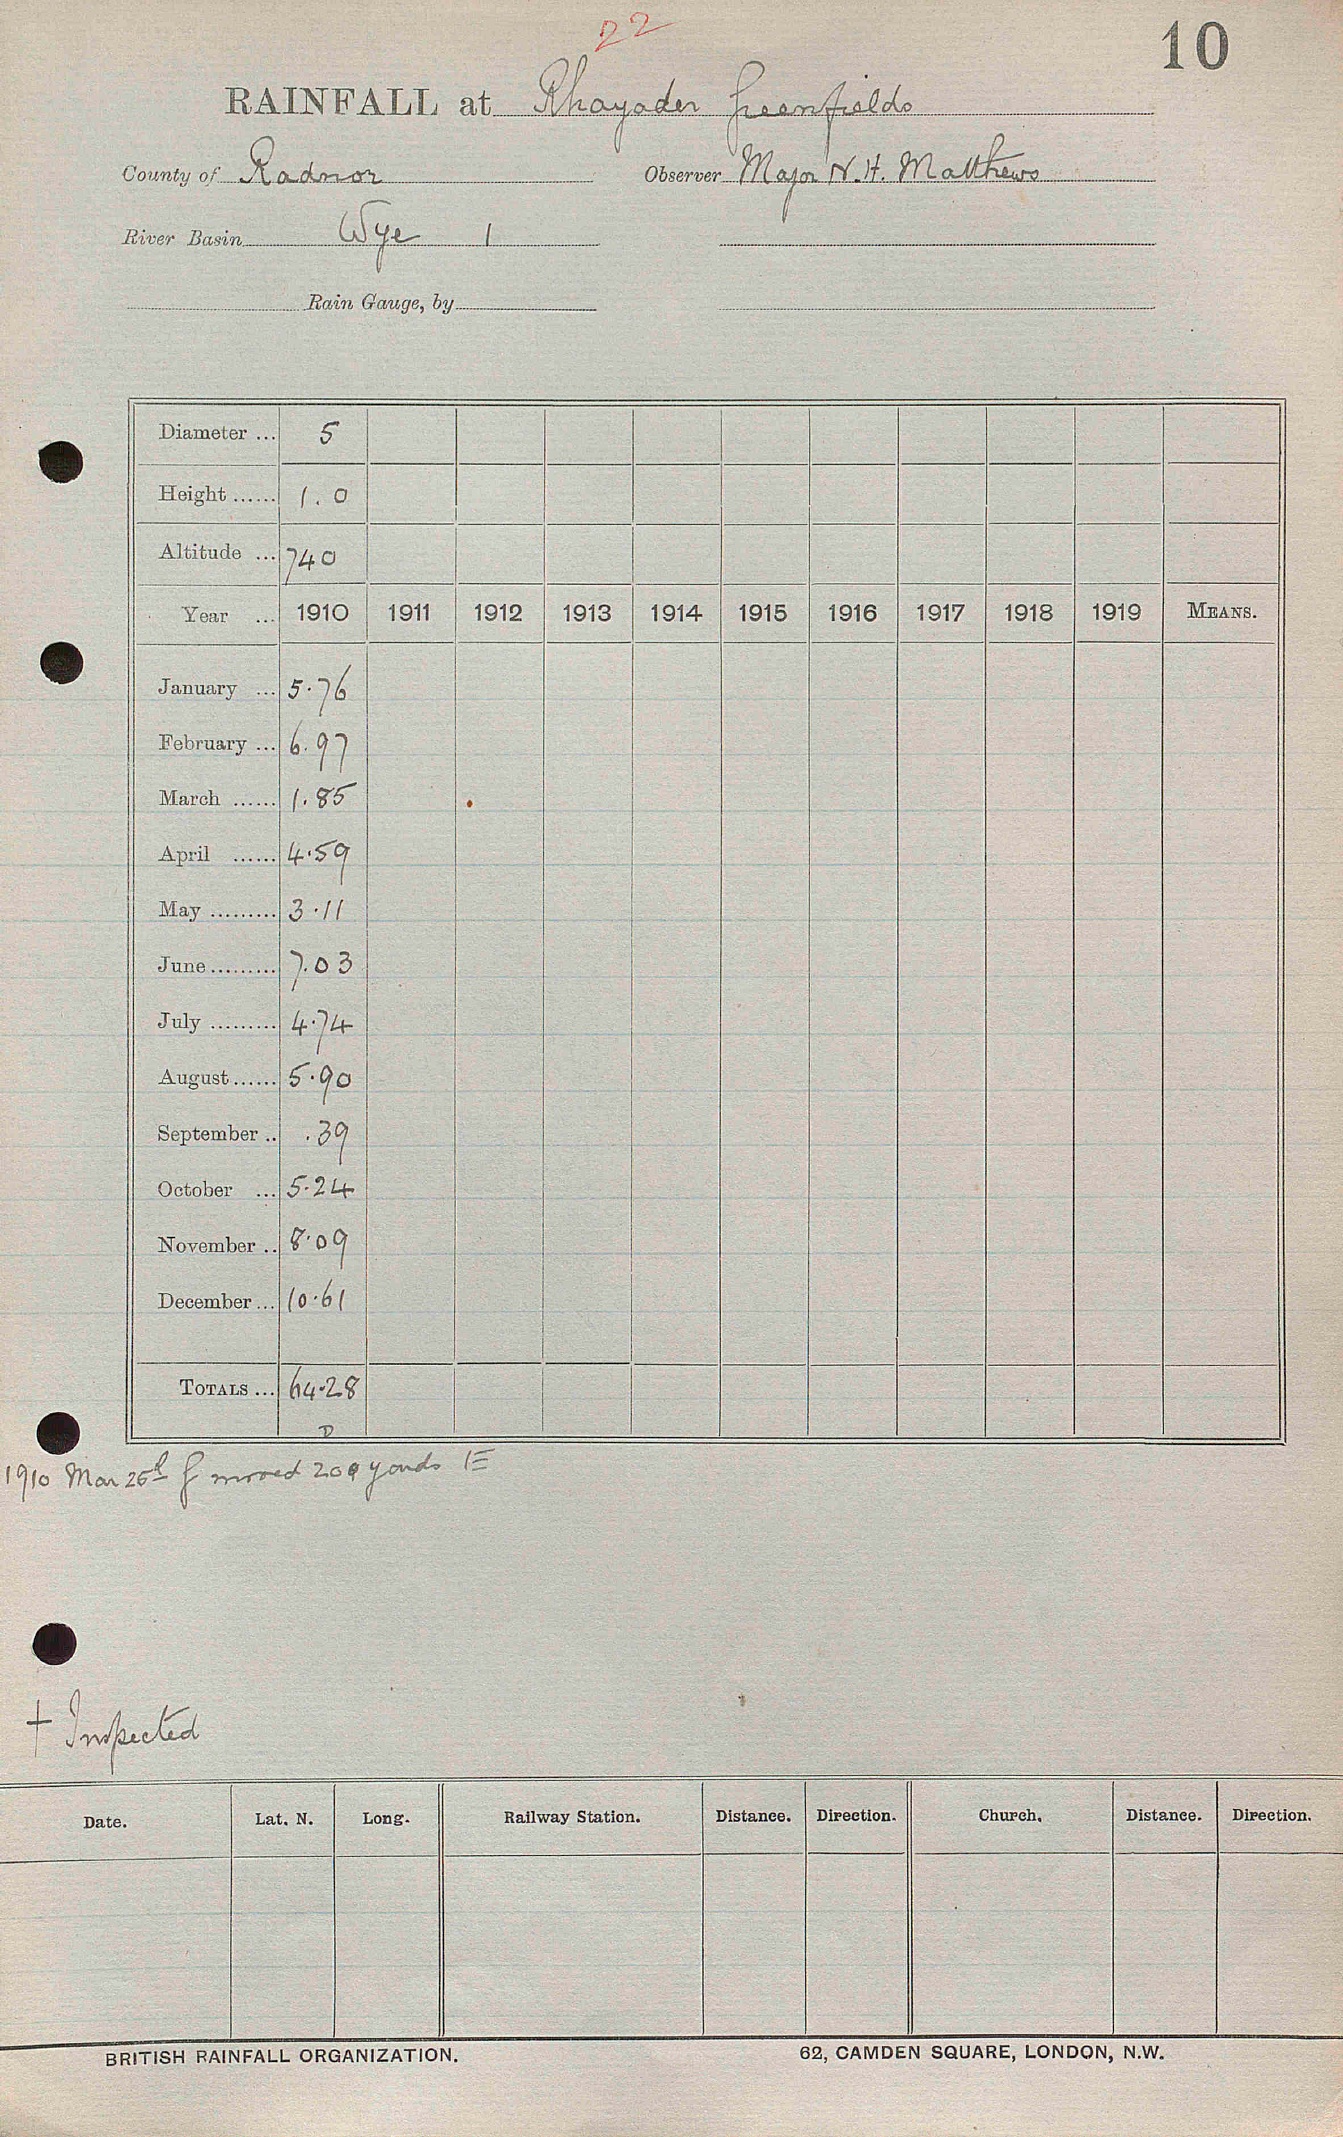 22
10
RAINFALL at Rhayader Greenfields
County of Radnor Observer Major N.H. Matthews
River Basin Wye 1
Rain Gauge, by
Diameter ... 5
Height ...... 1.0
Altitude ... 740
Year ... 1910 1911 1912 1913 1914 1915 1916 1917 1918 1919 MEANS.
January ... 5.76
February ... 6.97
March ...... 1.85
April ...... 4.59
May ......... 3.11
June ......... 7.03
July ......... 4.74
August ...... 5.90
September .. .39
October ... 5.24
November .. 8.09
December ... 10.61
TOTALS ... 64.28
D
1910 Mar 26th G moved 200 yards E
+ Inspected
Date. Lat. N. Long. Railway Station. Distance. Direction. Church. Distance. Direction.
BRITISH RAINFALL ORGANIZATION. 62, CAMDEN SQUARE, LONDON, N.W.